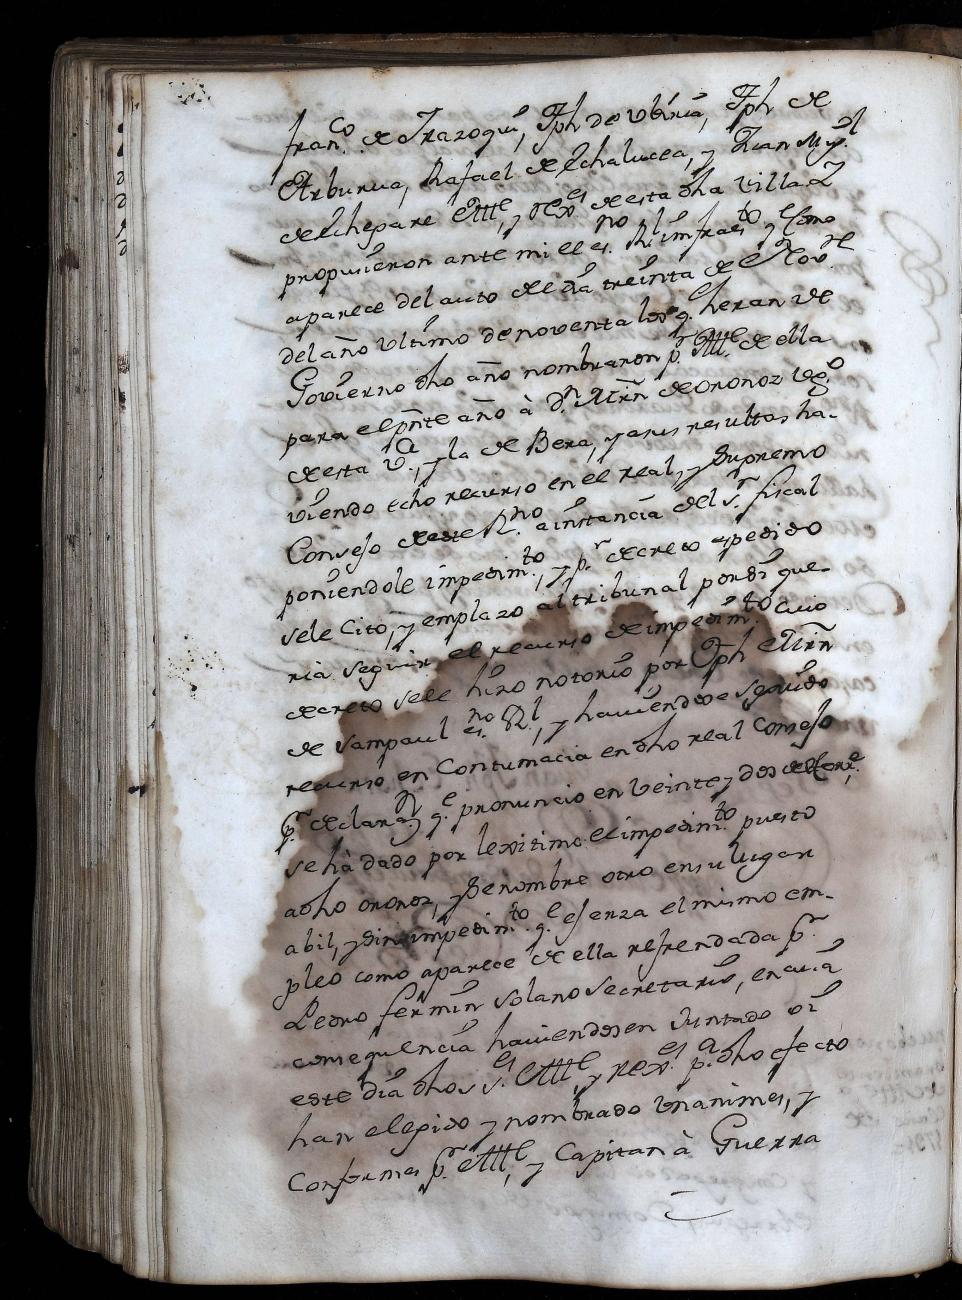 fran.co de Irazoqui, Jph de Vbiria, Jph de
Arburua, Rafael de Echalucea, y Juan Mig.l
de Echepare Alll.e, y rex.es de esta dha villa
propusieron ante mi el es.no Rl. imfraes.to y como
aparece del auto de dia treinta de Nov.re
del año vltimo de noventa los q.e heran de
Govierno dho año nombraron p.r Alll.e de ella
para el pñte año à D.n Mrñ de Oronoz vez.o
de esta v.a, y la de Bera, y a sus resultas ha-
viendo echo recurso en el real, y Supremo
Consejo de este R.no a instancia del S.r fiscal
poniendole impedim.to, y p.r decreto espedido
sele Cito, y emplazo al tribunal por si que-
ria seguir el recurso de impedim.to cuio
decreto sele hizo notorio por Jph Mrñ
de Sampaul es.no Rl, y haviendose seguido
recurso en Contumacia en dho real Consejo
p.r declaraz.n q.e pronuncio en veinte y dos de
se hà dado por lexitimo el impedim.to puesto
a dho oronoz, y Se nombre otro en su lugar
abil, y Sin impedim.to q.e ejerza el mismo em-
pleo como aparece de ella refrendada p.r
Pedro fermin Solano Secretario, en cuia
consequencia haviendosen Juntado oi
este dia dhos S.es Alll.e, y rex.es p.a dho efecto
han elegido y nombrado vnanimes, y
Conformes p.r Alll.e, y Capitan à Guerra